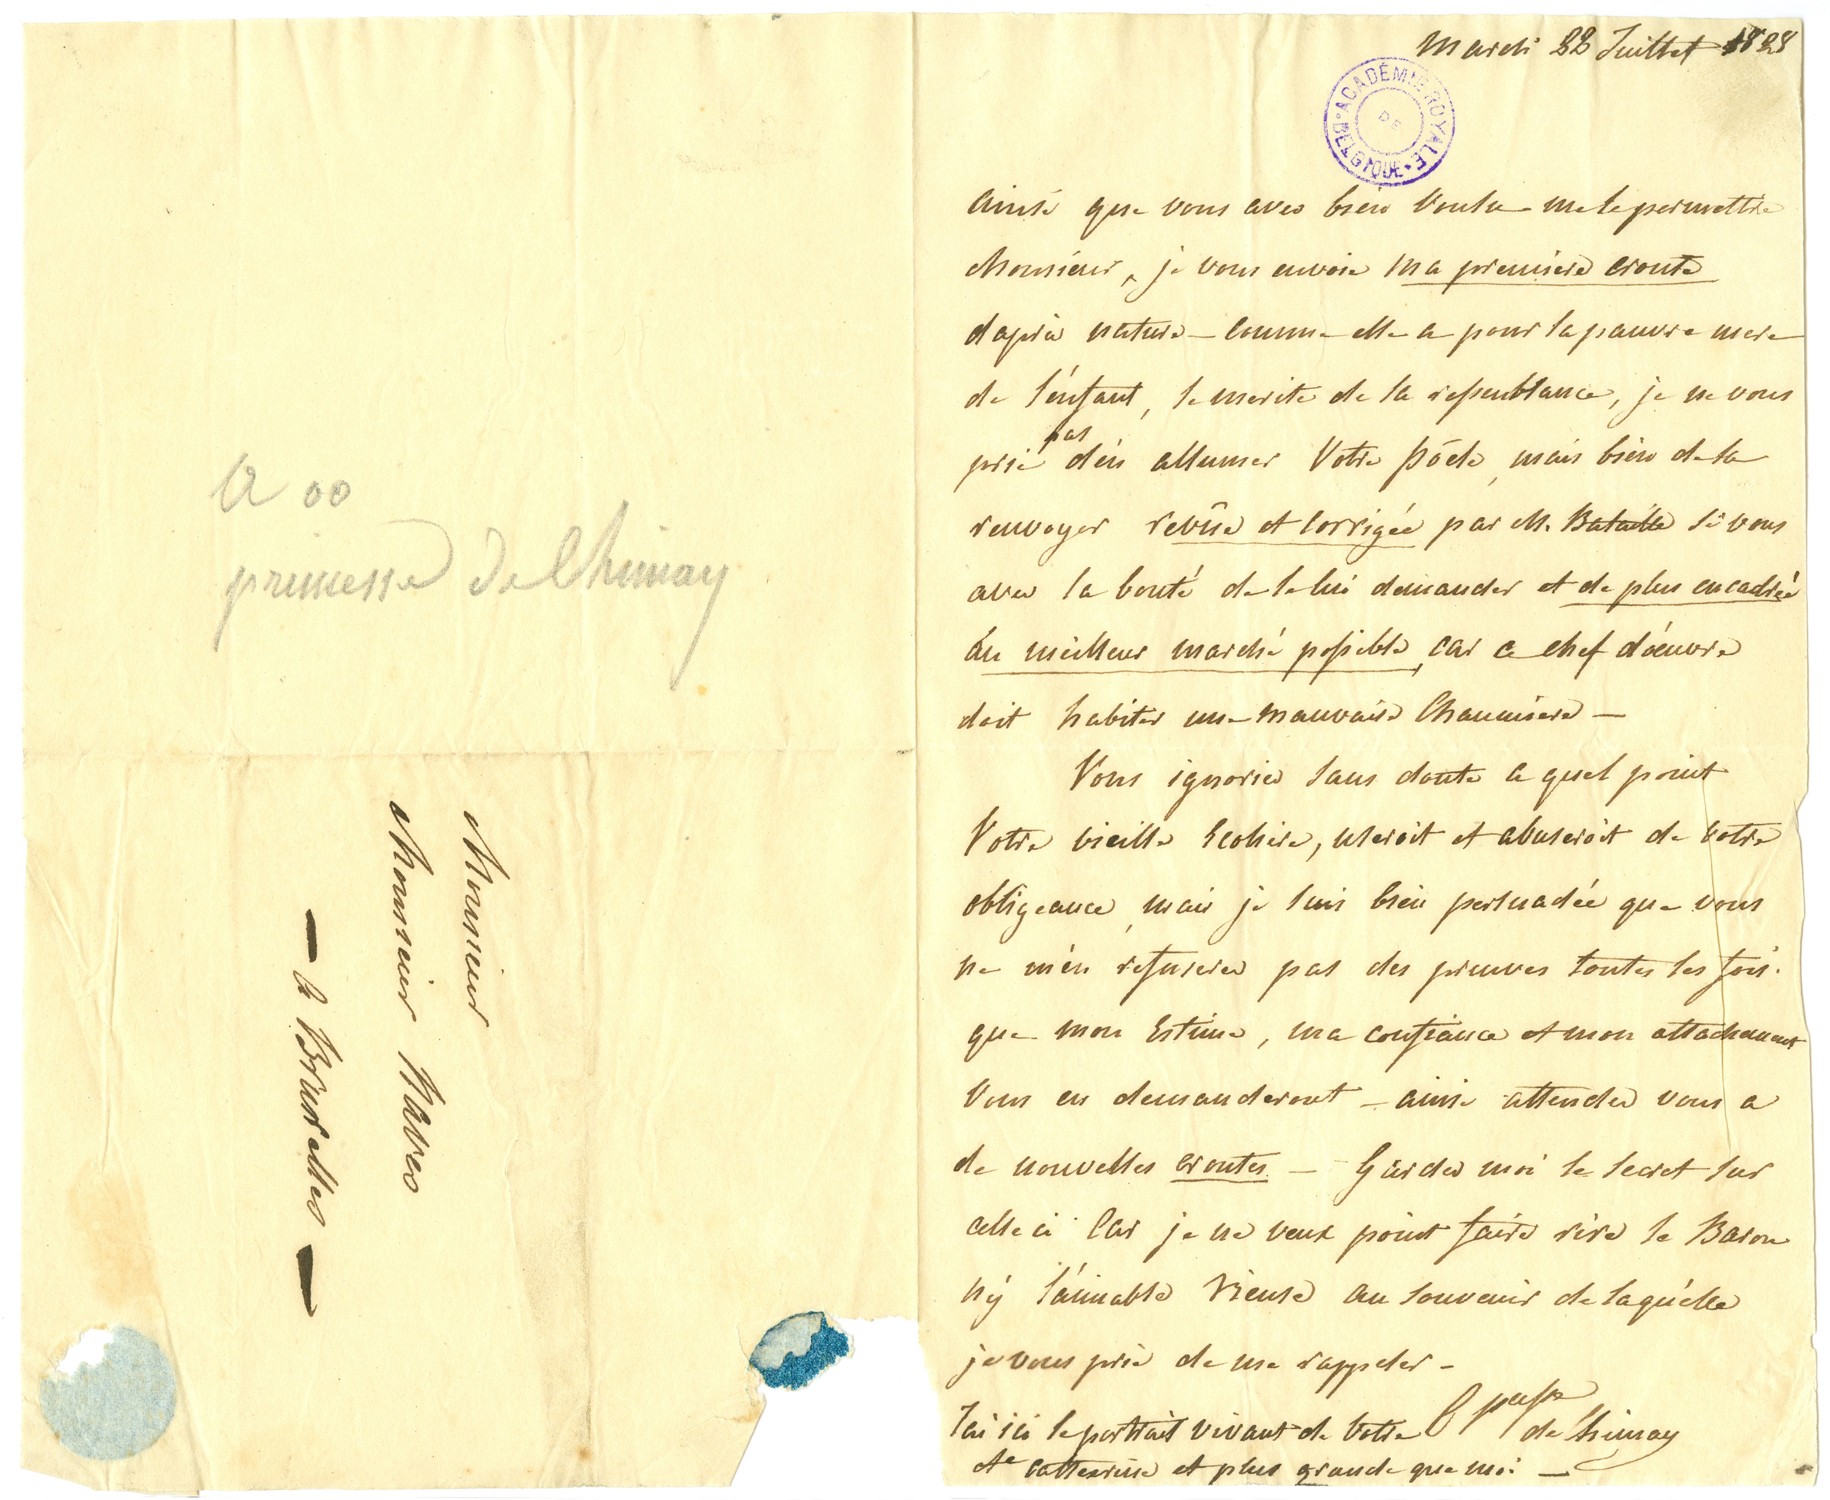 a oo
princesse de Chimay
Monsieur
Monsieur Navez
a Bruxelles
Mardi 22 Juillet 1828
ACADÉMIE ROYALE DE BELGIQUE
ainsi que vous avez bien voulu me le permettre
Monsieur, je vous envoie ma premiere croute
daprès nature – comme elle a pour la pauvre mere
de l'énfant, le merite de la ressemblance, je ne vous
prie pas d'én allumer Votre poële, mais bien de la
renvoyer revüe et corrigée par M. Bataille si vous
avez la bonté de le lui demander et de plus encadrée
áu meilleur marché possible, car ce chef d'oeuvre
doit habiter une mauvaise Chaumiere –
Vous ignoriez sans doute a quel point
Votre vieille Ecoliere, useroit et abuseroit de votre
obligeance, mais je suis bien persuadée que vous
ne m'én refuserez pas des preuves toutes les fois
que mon Estime, ma confiance et mon attachement
Vous en demanderont – ainsi attendez vous a
de nouvelles croutes – Gardez moi le secret sur
celle ci Car je ne veux point faire rire le Baron
ny l'áimable rieuse au souvenir de laquélle
je vous prie de me rappeler –
la Psse de Chimay
J'ai ici le portrait vivant de Votre
Ste Catterine et plus grande que moi –